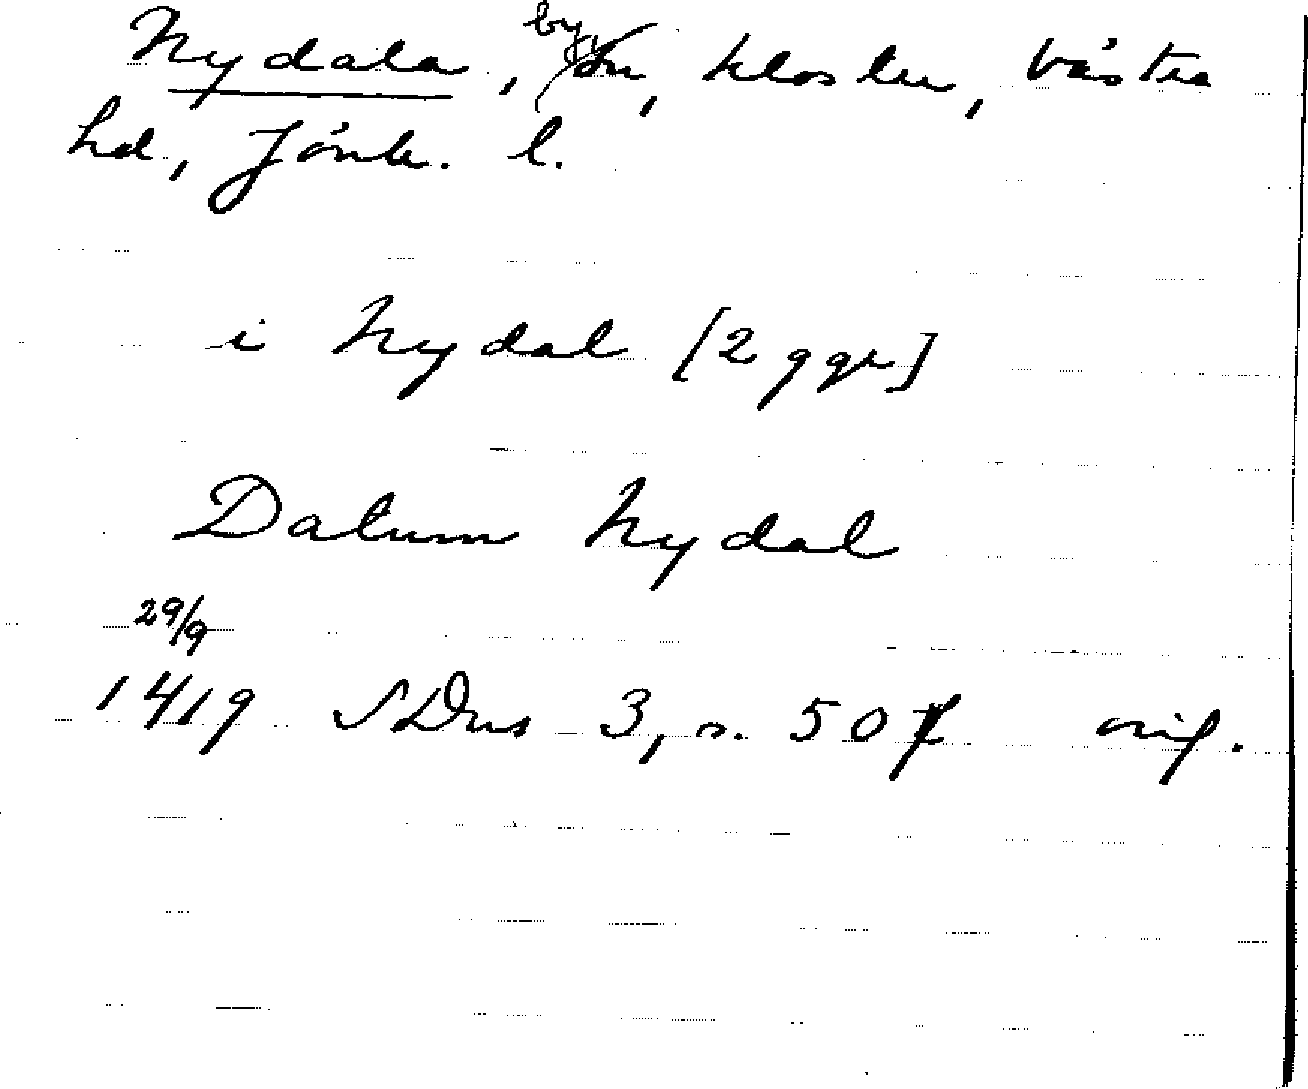 Nydala, by, sn, kloster, Västra
hd, Jönk. l.
i Nydal [2 ggr]
Datum Nydal
29/9
1419 SDns 3, s. 507 orig.